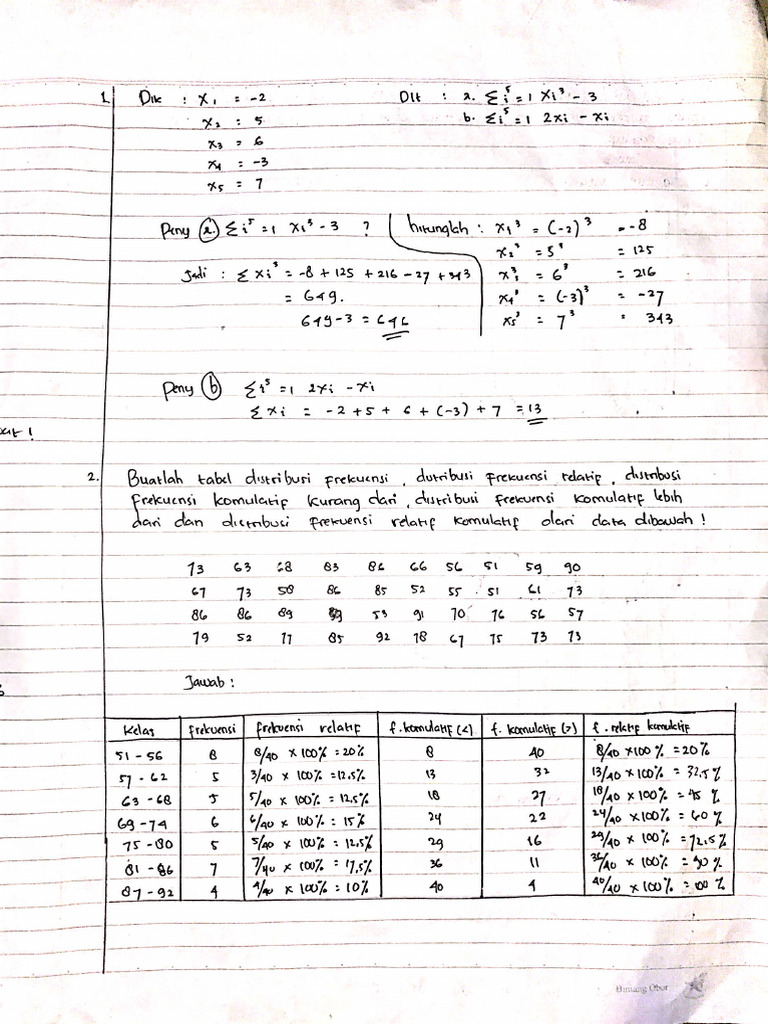 1. Dik : x₁ = -2 Dit : a. Σi⁵=1 Xi³ - 3
x₂ : 5 b. Σi⁵=1 2xi - xi
x₃ = 6
x₄ = -3
x₅ = 7
Peny (a) Σi⁵=1 xi³-3 ? hitunglah : x₁³ = (-2)³ = -8
x₂³ = 5³ = 125
Jadi : Σxi³ = -8 + 125 + 216 - 27 + 343 x₃³ = 6³ = 216
= 649. x₄³ = (-3)³ = -27
649-3 = 646 x₅³ = 7³ = 343
Peny (b) Σi⁵=1 2xi - xi
Σxi = -2 + 5 + 6 + (-3) + 7 = 13
2. Buatlah tabel distribusi frekuensi, distribusi frekuensi relatif, distribusi
frekuensi komulatif kurang dari, distribusi frekuensi komulatif lebih
dari dan distribusi frekuensi relatif komulatif dari data dibawah !
73 63 68 83 86 66 56 51 59 90
67 73 58 86 85 52 55 51 61 73
86 86 89 53 91 70 76 56 57
79 52 77 85 92 78 67 75 73 73
Jawab :
Kelas frekuensi frekuensi relatif f. komulatif (<) f. komulatif (>) f. relatif komulatif
51 - 56 8 8/40 x 100% = 20% 8 40 8/40 x 100% = 20%
57 - 62 5 3/40 x 100% = 12,5% 13 32 13/40 x 100% = 32,5%
63 - 68 5 5/40 x 100% = 12,5% 18 27 18/40 x 100% = 45%
69 - 74 6 6/40 x 100% = 15% 24 22 24/40 x 100% = 60%
75 - 80 5 5/40 x 100% = 12,5% 29 16 29/40 x 100% = 72,5%
81 - 86 7 7/40 x 100% = 17,5% 36 11 36/40 x 100% = 90%
87 - 92 4 4/40 x 100% = 10% 40 4 40/40 x 100% = 100%
Bintang Obor